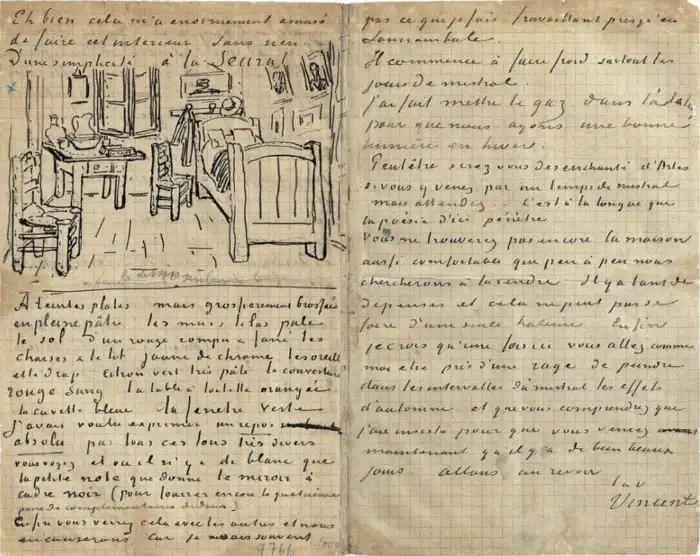 Eh bien cela m'a enormement amusé
de faire cet interieur sans rien
D'une simplicité à la Seurat
A teintes plates mais grossierement brossées
en pleine pâte les murs lilas pale
le sol d'un rouge rompu & fané les
chaises & le lit jaune de chrome les oreillers
et le drap citron vert très pâle la couverture
rouge sang la table à toilette orangée
la cuvette bleue la fenetre verte
j'avais voulu exprimer un repos
absolu par tous ces tons très divers
vous voyez et où il n'y a de blanc que
la petite note que donne le miroir à
cadre noir (pour fourrer encore la quatrième
paire de complementaires dedans)
Enfin vous verrez cela avec les autres et nous
en causerons car je ne sais souvent
9766
pas ce que je fais travaillant presqu'en
somnambule.
Il commence à faire froid surtout les
jours de mistral.
J'ai fait mettre le gaz dans l'atelier
pour que nous ayons une bonne
lumière en hiver.
Peutêtre serez vous desenchanté d'Arles
si vous y venez par un temps de mistral
mais attendez.. C'est à la longue que
la poésie d'ici pénètre
Vous ne trouverez pas encore la maison
aussi comfortable que peu à peu nous
chercherons à la rendre Il y a tant de
dépenses et cela ne peut pas se
faire d'une seule haleine Enfin
je crois qu'une fois ici vous allez comme
moi etre pris d'une rage de peindre
dans les intervalles du mistral les effets
d'automne et que vous comprendrez que
j'aie insisté pour que vous veniez
maintenant qu'il y a de bien beaux
jours. allons au revoir
t.à v
Vincent